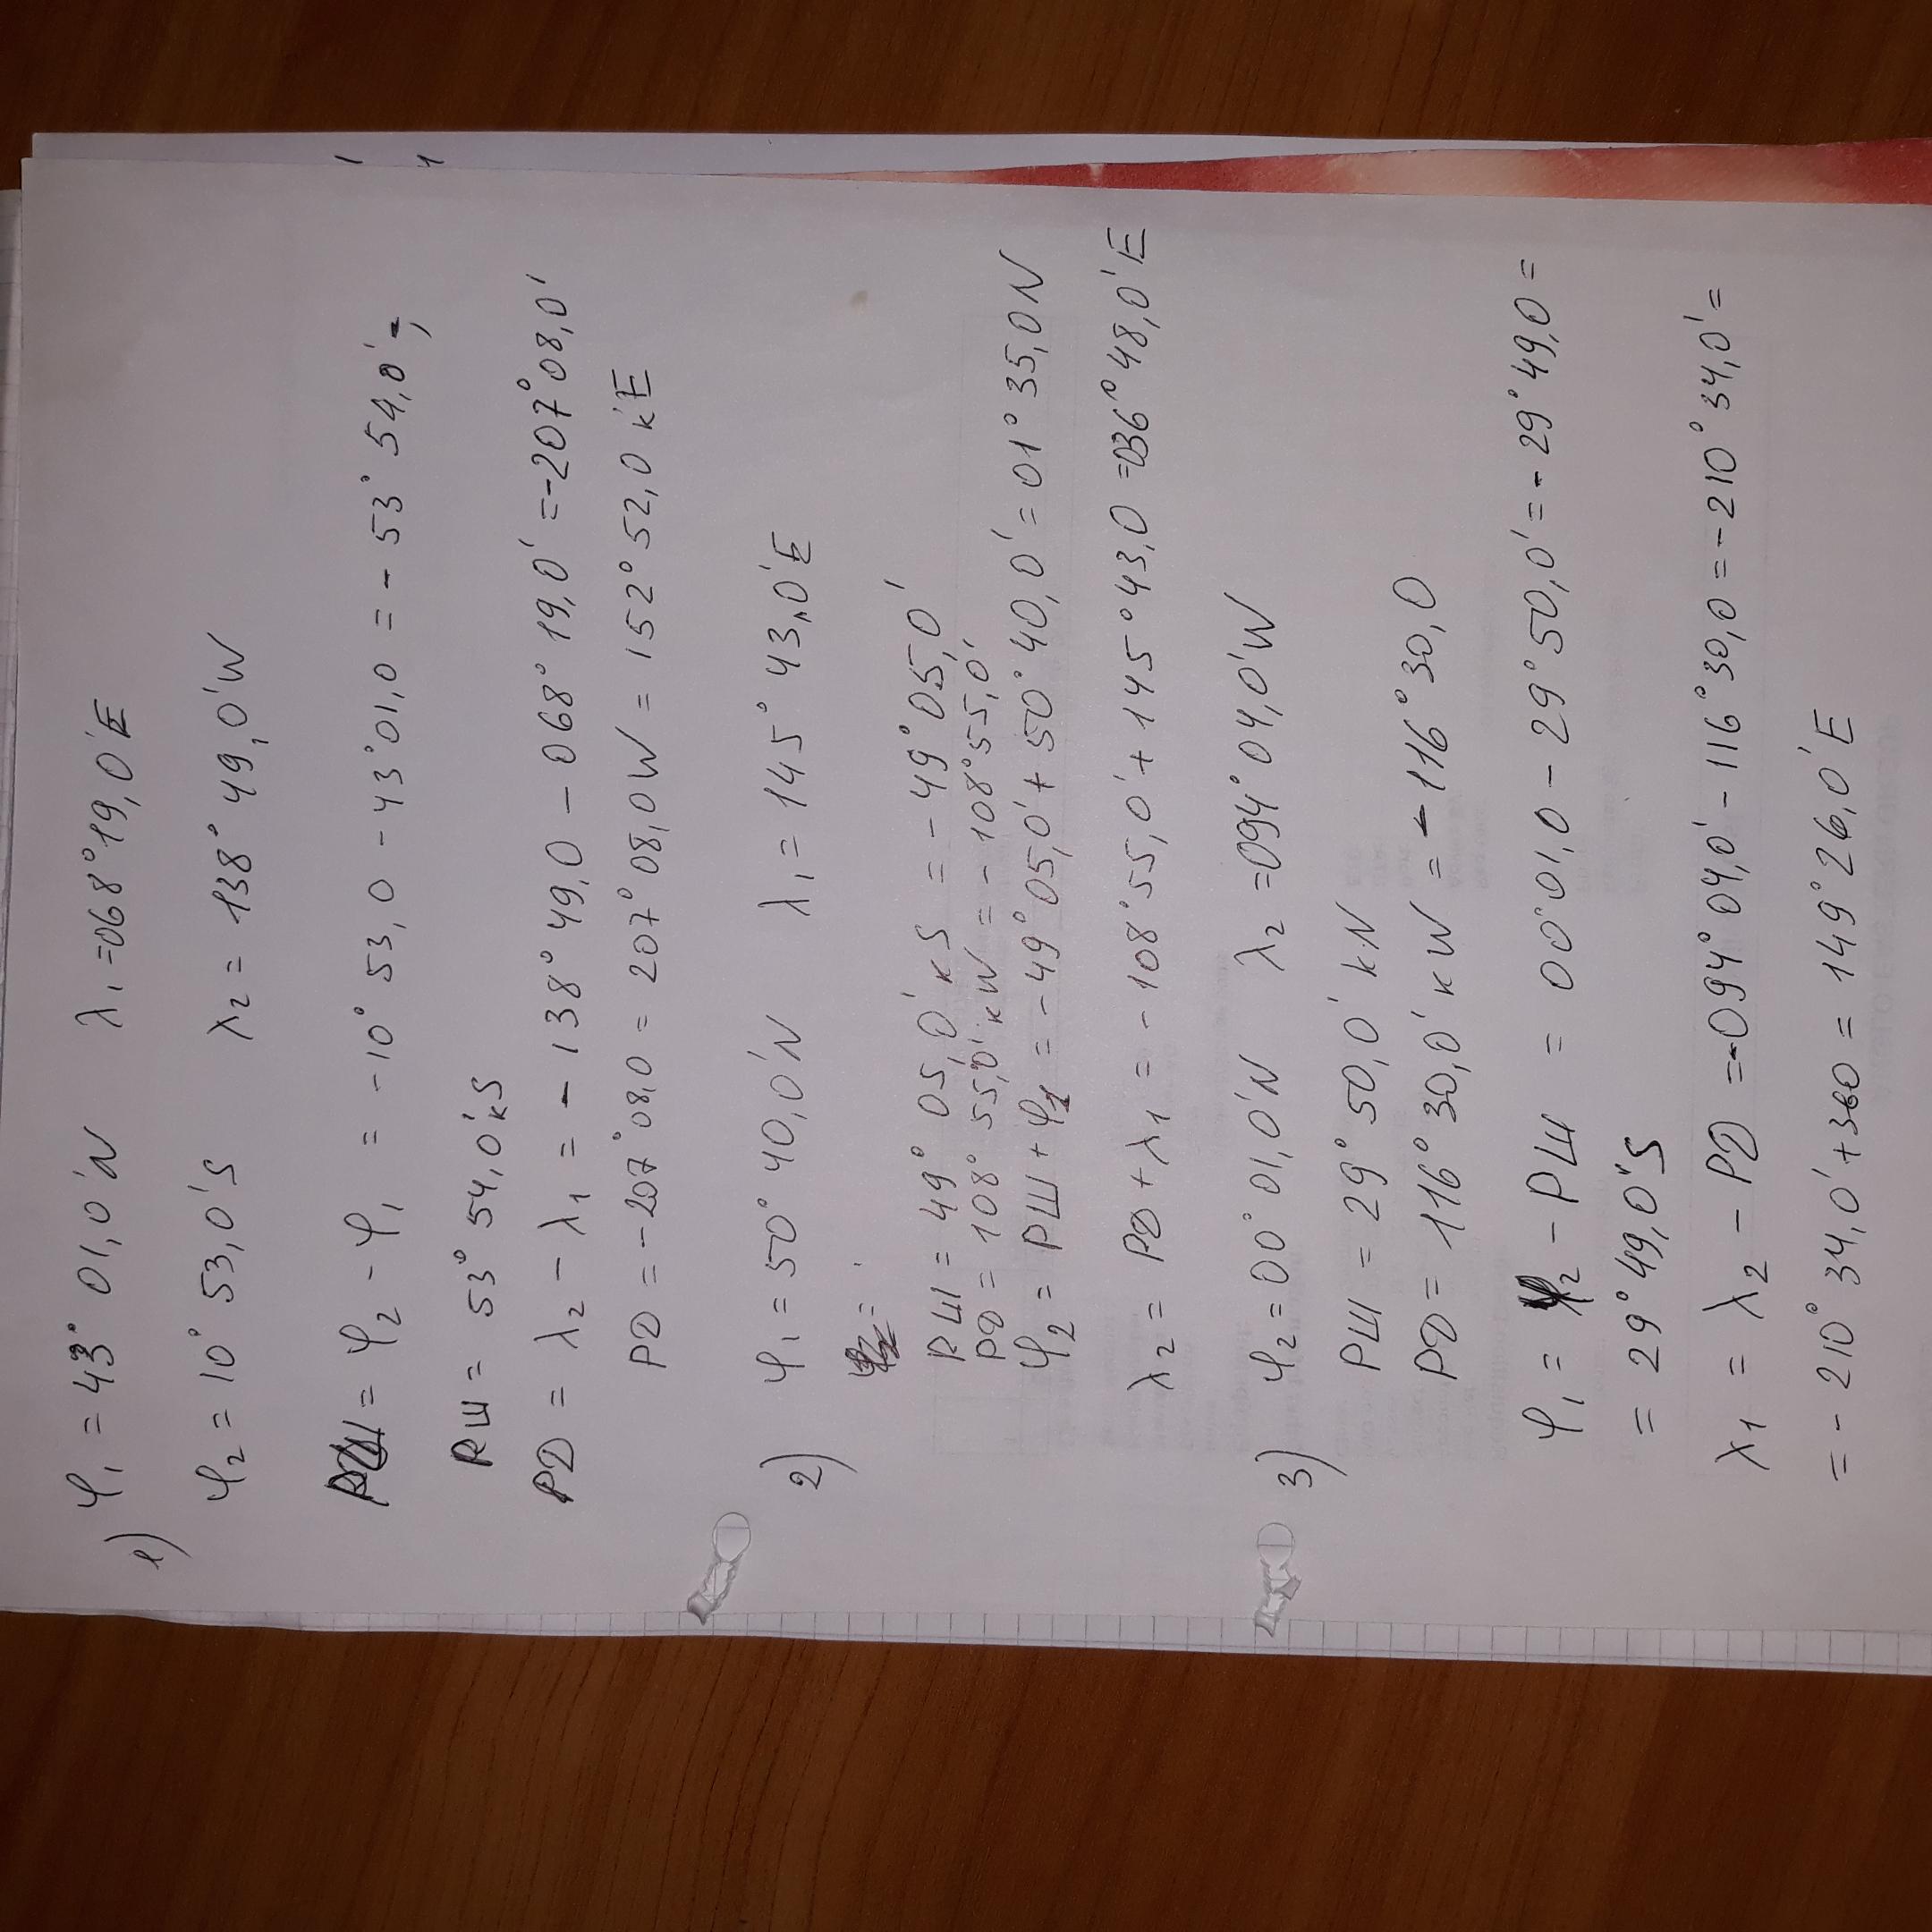 1) φ₁ = 43° 01,0'N λ₁ =068°19,0'E
φ₂ = 10° 53,0'S λ₂ = 138° 49,0'W
РШ = φ₂ - φ₁ = -10° 53,0 - 43°01,0 = - 53° 54,0';
РШ = 53° 54,0'кS
РД = λ₂ - λ₁ = - 138° 49,0 - 068° 19,0' =-207°08,0'
РД = -207°08,0 = 207° 08,0W = 152° 52,0 к'E
2) φ₁ = 50° 40,0'N λ₁ = 145° 43,0'E
РШ = 49° 05,0' кS = - 49° 05,0'
РД = 108° 55,0' кW = - 108°55,0'
φ₂ = РШ + φ₁ = - 49° 05,0' + 50° 40,0' = 01° 35,0N
λ₂ = РД + λ₁ = - 108° 55,0' + 145° 43,0 =036° 48,0'E
3) φ₂ = 00° 01,0'N λ₂ =094° 04,0'W
РШ = 29° 50,0' кN
РД = 116° 30,0' кW = - 116° 30,0
φ₁ = φ₂ - РШ = 00°01,0 - 29° 50,0' = - 29° 49,0 =
= 29° 49,0'S
λ₁ = λ₂ - РД =-094° 04,0' - 116° 30,0 = - 210° 34,0' =
= - 210° 34,0' + 360 = 149° 26,0'E